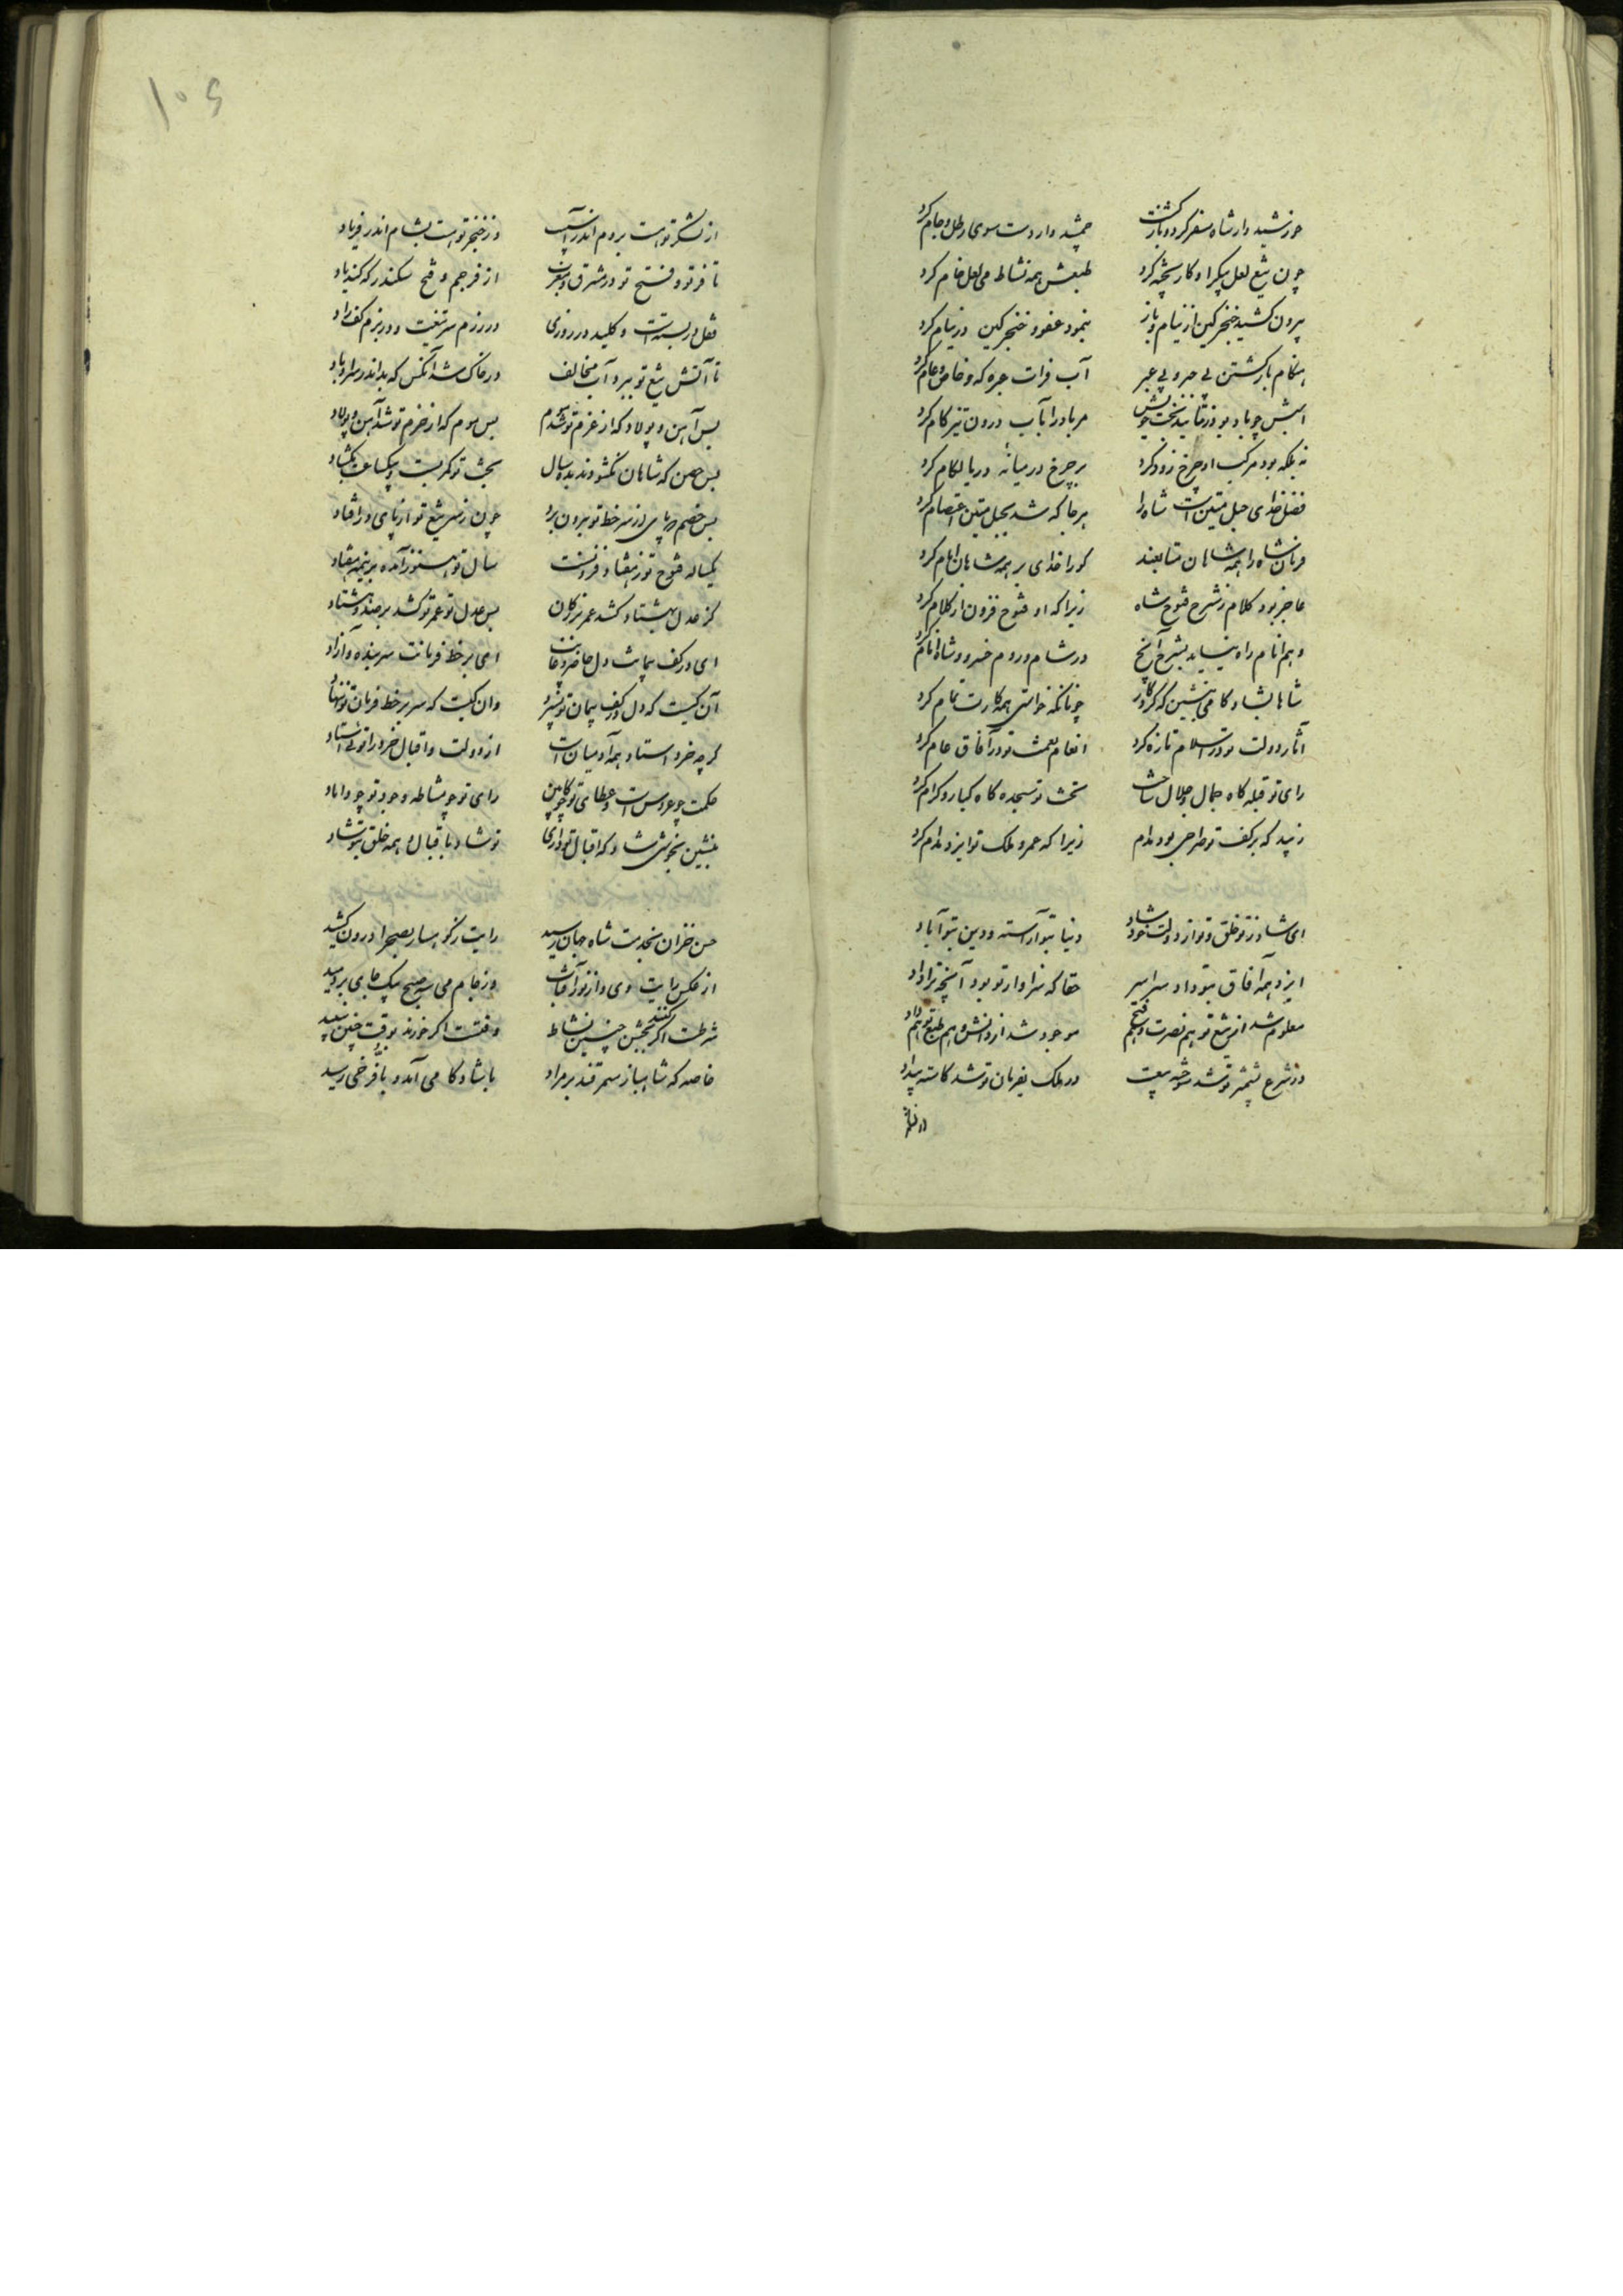 خورشید وار شاه سفر کرد و بازگشت جمشید وار دست سوی رطل و جام کرد
چون تیغ لعل پیکر او کار پخته کرد طبعش همه نشاط می لعل خام کرد
بیرون کشید خنجر کین از نیام و باز بنمود عفو و خنجر کین در نیام کرد
هنگام بازگشتن بی جسر و بی عبر آب فرات جره که و خاص و عام کرد
اسبش چو باد بود و ز تایید بخت خویش مر باد را بآب درون تیز کام کرد
نه بلکه بود مرکب او چرخ زود گرد بر چرخ در میانه دریا لگام کرد
فضل خدای حبل متین است شاه را هر جا که شد بحبل متین اعتصام کرد
فرمان شاه را همه شاهان متابعند کورا خدای بر همه شاهان امام کرد
عاجز بود کلام ز شرح فتوح شاه زیرا که او فتوح فزون از کلام کرد
وهم انام راه نیابد بشرح آنچ در شام و روم خسرو و شاه انام کرد
شاها بشادکامی بنشین که کردگار چونانکه خواستی همه کارت تمام کرد
آثار دولت تو در اسلام تازه کرد انعام نعمت تو در آفاق عام کرد
رای تو قبله گاه جمال و جلال ساخت تخت تو سجده گاه کبار و کرام کرد
زیبد که بر کف تو صراحی بود مدام زیرا که عمر و ملک تو ایزد مدام کرد
ای شاد ز تو خلق و تو از دولت خود شاد دنیا بتو آراسته و دین بتو آباد
ایزد همه آفاق بتو داد سراسر حقا که سزاوار تو بود آنچه ترا داد
معلوم شد از تیغ تو هم نصرت و هم فتح موجود شد از دانش و هم طبع تو هم داد
در شرع شمشیر تو شد بدعت در ملک بفرمان تو شد کاسته بیداد
از لشکر تو هست بروم اندر آسیب وز خنجر تو هست بشام اندر فریاد
تا فر تو و فتح تو در مشرق و مغرب از فر جم و فتح سکندر که کند یاد
قفل در بسته است و کلید در روزی در رزم سر تیغت و در بزم کف راد
تا آتش تیغ تو ببرد آب مخالف در خاک شد آنکس که بد اندر سر او باد
بس آهن و پولاد که از عزم تو شد موم بس موم که از حزم تو شد آهن و پولاد
بس حصن که شاهان نگشودند بده سال بخت تو کمر بست و بیکساعت بگشاد
بس خصم که پای از سر خط تو برون برد چون ز سر تیغ تو از پای در افتاد
یکساله فتوح تو ز هفتاد فزونست سال تو هنوز آمده بر نیمه هفتاد
گر عدل بهشتاد کشد عمر بزرگان بس عدل تو عمر تو کشد بر صد و هشتاد
ای در کف پیمانت دل حاضر و غایب ای بر خط فرمانت سر بنده و آزاد
آن کیست که دل در کف پیمان تو نسپرد وان کیست که سر بر خط فرمان تو ننهاد
گرچه خرد استاد همه آدمیان است از دولت و اقبال خرد را توئی استاد
حکمت چو عروس است و عطای تو چو کابین رای تو چو مشاطه و جود تو چو داماد
بنشین بخوشی شاد که اقبال تو داری تو شاد باقبال و همه خلق بتو شاد
جشن خزان بخدمت شاه جهان رسید رایت ز کوهسار بصحرا درون کشید
از عکس رایت وی وز نور آفتاب وز جام می سه صبح بیک جای بردمید
شرطست اگر کنند بجشن چنین نشاط وقتست اگر خورند بوقت چنین نبید
خاصه که شاهباز سمرقند بر مراد با شادکامی آمد و با فرخی رسید
۱۰۶